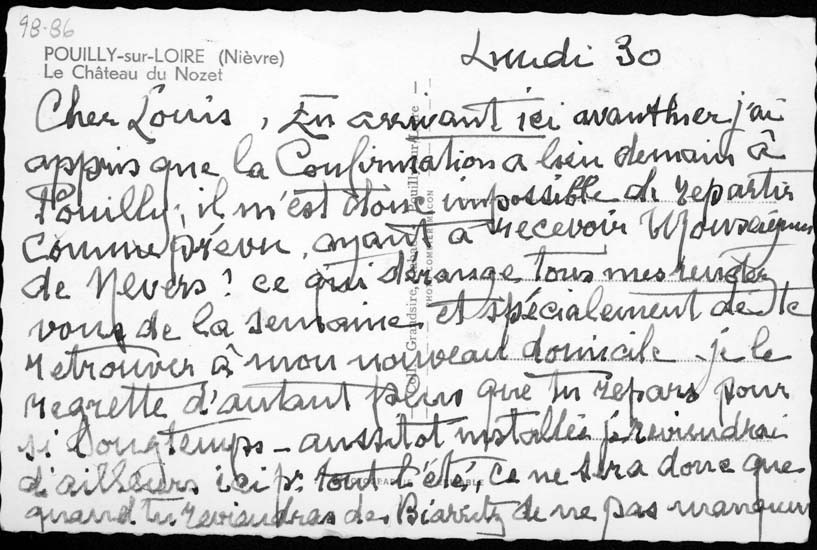 98-86
POUILLY-sur-LOIRE (Nièvre)
Le Château du Nozet
Lundi 30
Cher Louis, En arrivant ici avanthier j'ai
appris que la Confirmation a lieu demain à
Pouilly, il m'est donc impossible de repartir
comme prévu, ayant à recevoir Monseigneur
de Nevers! ce qui dérange tous mes rendez
vous de la semaine et spécialement de te
retrouver à mon nouveau domicile - je le
regrette d'autant plus que tu repars pour
si longtemps - aussitot installée je reviendrai
d'ailleurs ici pr tout l'été, ce ne sera donc que
quand tu reviendras de Biarritz de ne pas manquer